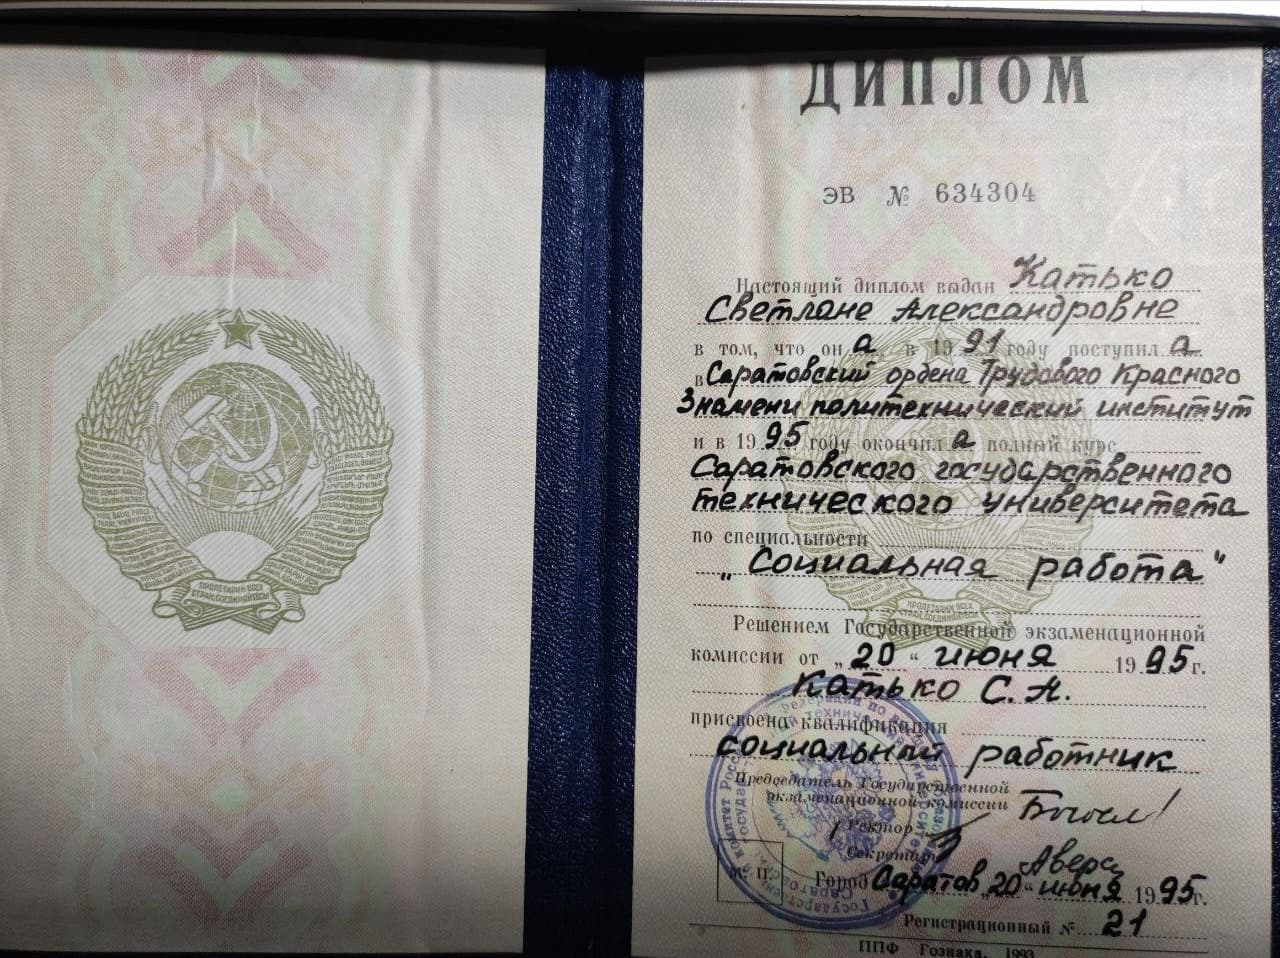 ПРОЛЕТАРИИ ВСЕХ
СТРАН, СОЕДИНЯЙТЕСЬ!
ДИПЛОМ
ЭВ № 634304
Настоящий диплом выдан Катько
Светлане Александровне
в том, что он а в 19 91 году поступил а
в Саратовский ордена Трудового Красного
Знамени политехнический институт
и в 19 95 году окончил а полный курс
Саратовского государственного
технического университета
по специальности
„Социальная работа"
Решением Государственной экзаменационной
комиссии от „20“ июня 19 95 г.
Катько С. А.
присвоена квалификация
социальный работник
Председатель Государственной
экзаменационной комиссии
Ректор
Секретарь
М. П. Город Саратов „20“ июня 19 95 г.
Регистрационный № 21
ППФ Гознака. 1993.